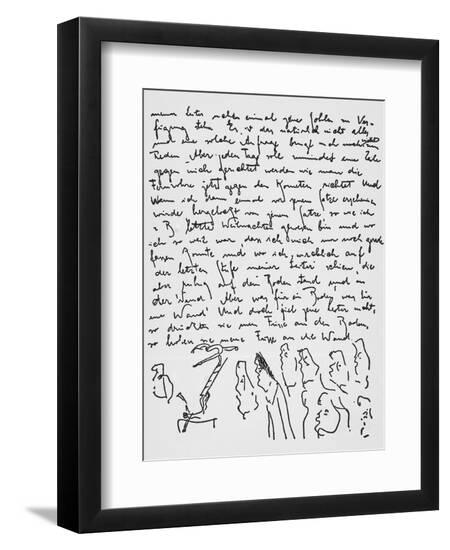 meiner Leiter nicht einmal jene Sohlen zur Ver-
fügung stehn. Es ist das natürlich nicht alles
und eine solche Anfrage bringt mich noch nicht zum
Reden. Aber jeden Tag soll zumindest eine Zeile
gegen mich gerichtet werden wie man die
Fernrohre jetzt gegen den Kometen richtet. Und
wenn ich dann einmal vor jenem Satze erscheinen
würde hergelockt von jenem Satze, so wie ich
z B letzte Weihnachten gewesen bin und wo
ich so weit war, dass ich mich nur noch gerade
fassen konnte und wo ich wirklich auf
der letzten Stufe meiner Leiter schien, die
aber ruhig auf dem Boden stand und an
der Wand. Aber was für ein Boden, was für
eine Wand! Und doch fiel jene Leiter nicht,
so drückten sie meine Füsse an den Boden,
so hoben sie meine Füsse an die Wand.